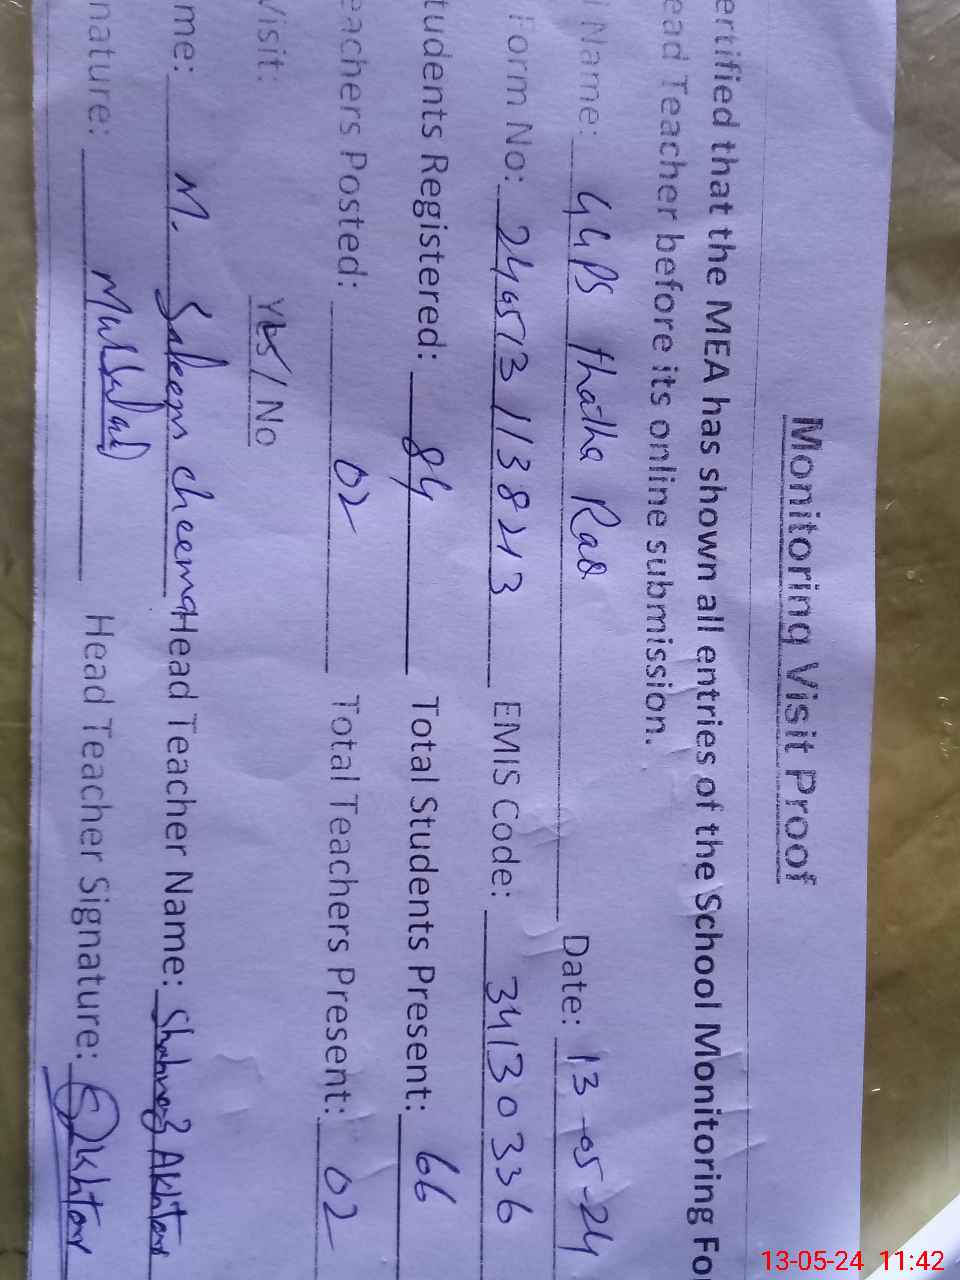 Monitoring Visit Proof
ertified that the MEA has shown all entries of the School Monitoring Fo
ead Teacher before its online submission.
l Name: GGPS thatha Rao Date: 13-05-24
Form No: 2405131138213 EMIS Code: 34130336
tudents Registered: 84 Total Students Present: 66
eachers Posted: 02 Total Teachers Present: 02
Visit: Yes / No
me: M. Saleem cheema Head Teacher Name: Shahnaz Akhtar
nature: Head Teacher Signature: Akhtar
13-05-24 11:42